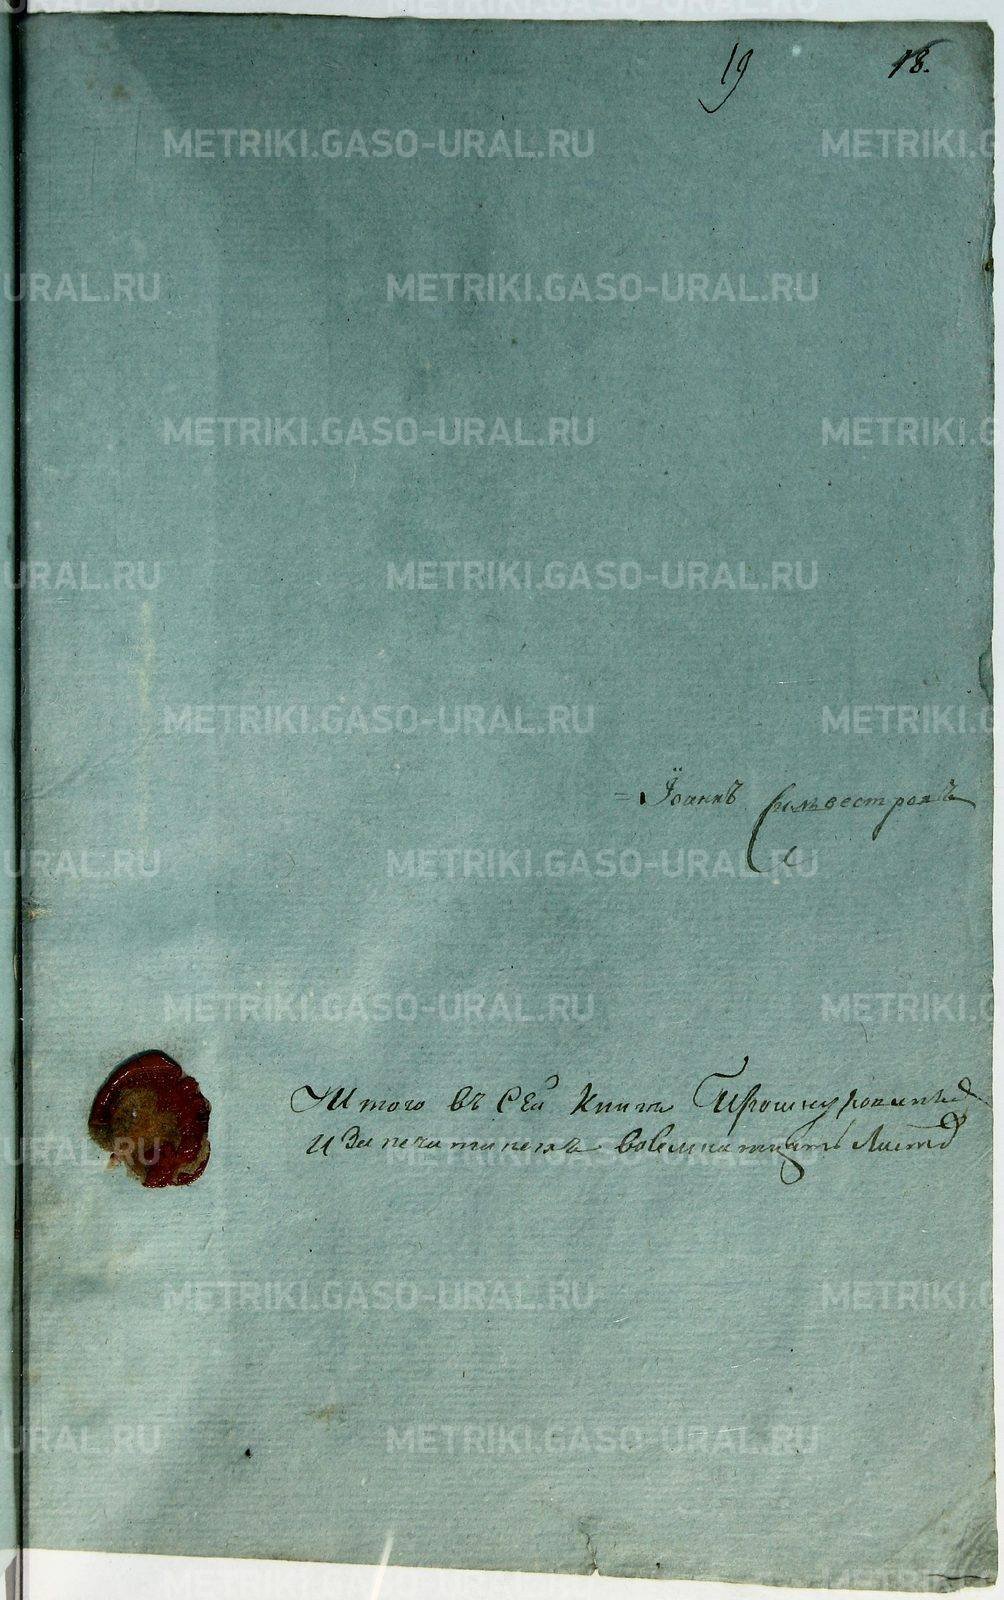 19 18.
Іоаннъ Сильвестровъ
Итого въ сей книгѣ прошнурованныхъ
и запечатанныхъ восемнатцать листовъ
METRIKI.GASO-URAL.RU